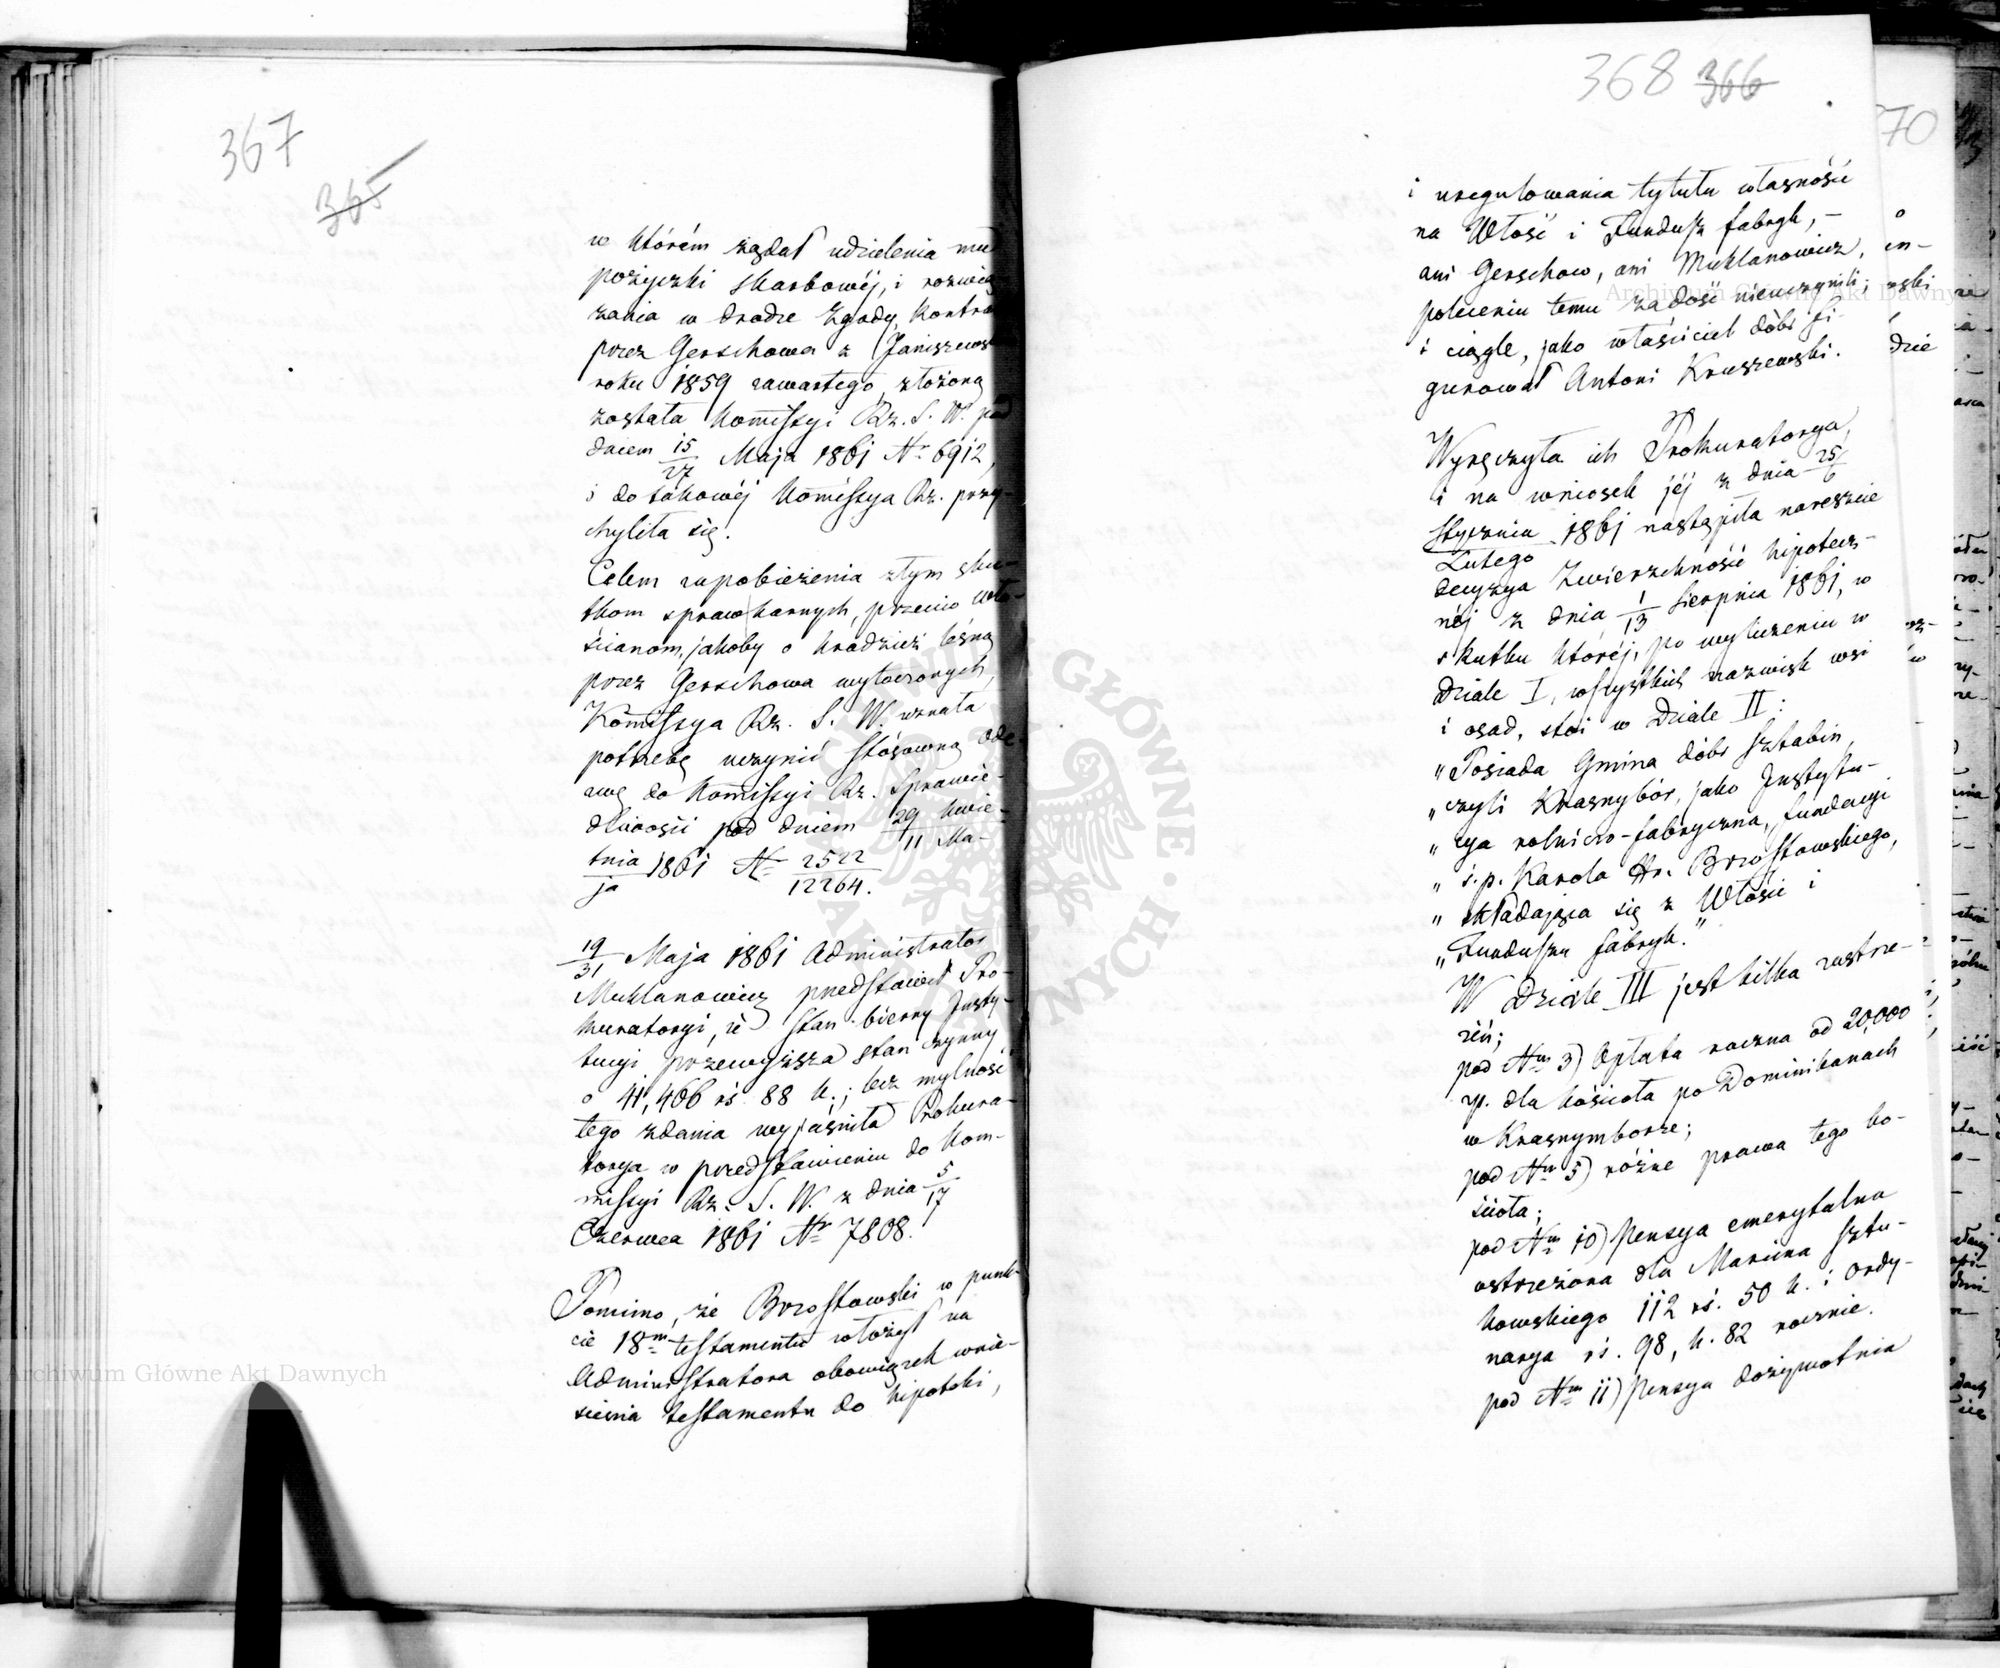 367
365
w którém żądał udzielenia mu
pożyczki skarbowéj, i rozwią
zania w drodze zgody, Kontra
przez Gerschowa z Janiszews
roku 1859 zawartego, złożoną
została Kommissyi Rz. S. W. pod
dniem 15/27 Maja 1861 Nr 6912,
i do takowéj Kommissya Rz. przy-
chyliła się.
Celem zapobieżenia złym sku-
tkom spraw karnych, przeciw wło-
ścianom, jakoby o kradzież leśną
przez Gerschowa wytoczonych,
Kommissya Rz. S. W. uznała
potrzebę uczynić stósowną ode-
zwę do Kommissyi Rz. Sprawie-
dliwości pod dniem 29 Kwie-
tnia / 11 Ma-
ja 1861 Nr 2522/12264.
19/31 Maja 1861 Administrator
Muklanowicz przedstawił Pro-
kuratoryi, iż stan bierny Insty-
tucyi przewyższa stan czynny
o 41,466 rś. 88 k.; lecz mylność
tego zdania wyjaśniła Prokura-
torya w przedstawieniu do Kom-
missyi Rz. S. W. z dnia 5/17
Czerwca 1861 Nr 7808.
Pomimo, że Brzostowski w punk-
cie 18m testamentu włożył na
Administratora obowiązek wnie-
sienia testamentu do hipoteki,
368 366
i uregulowania tytułu własności
na Włość i Fundusz fabryk, –
ani Gerschow, ani Muklanowicz,
poleceniu temu zadość nieuczynili;
i ciągle, jako właściciel dóbr fi-
gurował Antoni Kruszewski.
Wyręczyła ich Prokuratorya,
i na wniosek jéj z dnia 25/6
Stycznia/Lutego 1861 nastąpiła nareszcie
decyzya Zwierzchności hipotecz-
néj z dnia 1/13 Sierpnia 1861, w
skutku któréj, po wyliczeniu w
Dziale I, wszystkich nazwisk wsi
i osad, stoi w Dziale II:
"Posiada Gmina dóbr Sztabin
" czyli Krasnybór, jako Instytu-
" cya rolniczo-fabryczna, fundacyi
" ś.p. Karola Hr. Brzostowskiego,
" składająca się z Włości i
" Funduszu fabryk."
W Dziale III jest kilka zastrze-
żeń;
pod Nm 3) Opłata roczna od 20,000
zł. dla kościoła po Dominikanach
w Krasnymborze;
pod Nm 5) różne prawa tego ko-
ścioła;
pod Nm 10) Pensya emerytalna
ostrzeżona dla Marcina Sztu-
kowskiego 112 rś. 50 k. i Ordy-
narya rś. 98, k. 82 rocznie.
pod Nm 11) Pensya dożywotnia
70
Archiwum Główne Akt Dawnych
Archiwum Główne Akt Dawnych